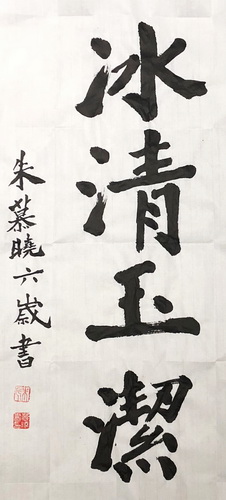 冰清玉潔
朱慕曉六歲書